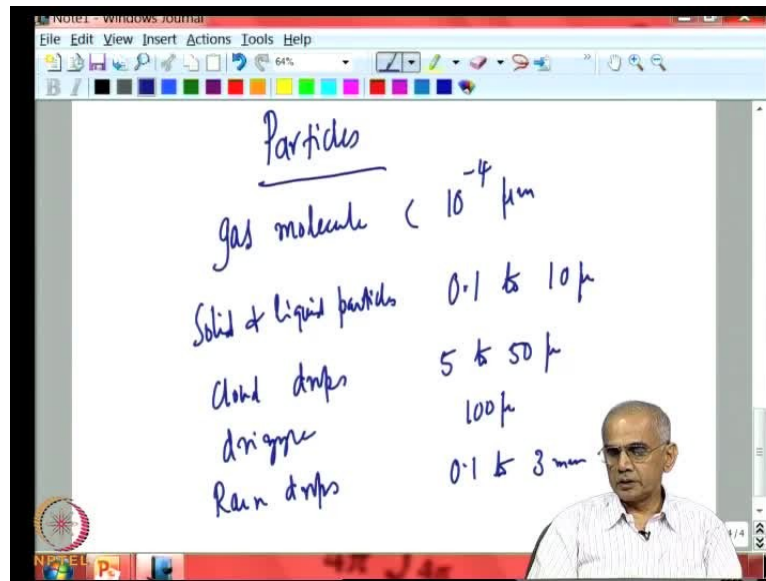 Note1 - Windows Journal
File Edit View Insert Actions Tools Help
64%
B I
Particles
gas molecule < 10⁻⁴ μm
Solid & liquid particles 0.1 to 10 μ
Cloud drops 5 to 50 μ
100 μ
Rain drops 0.1 to 3 mm
4/4
NPTEL